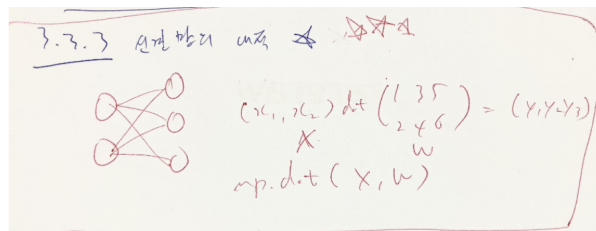 3.3.3 신경망의 내적 ☆ ☆☆☆
(x₁, x₂) dot (1 3 5
2 4 6) = (y₁ y₂ y₃)
X W
np.dot(X, W)